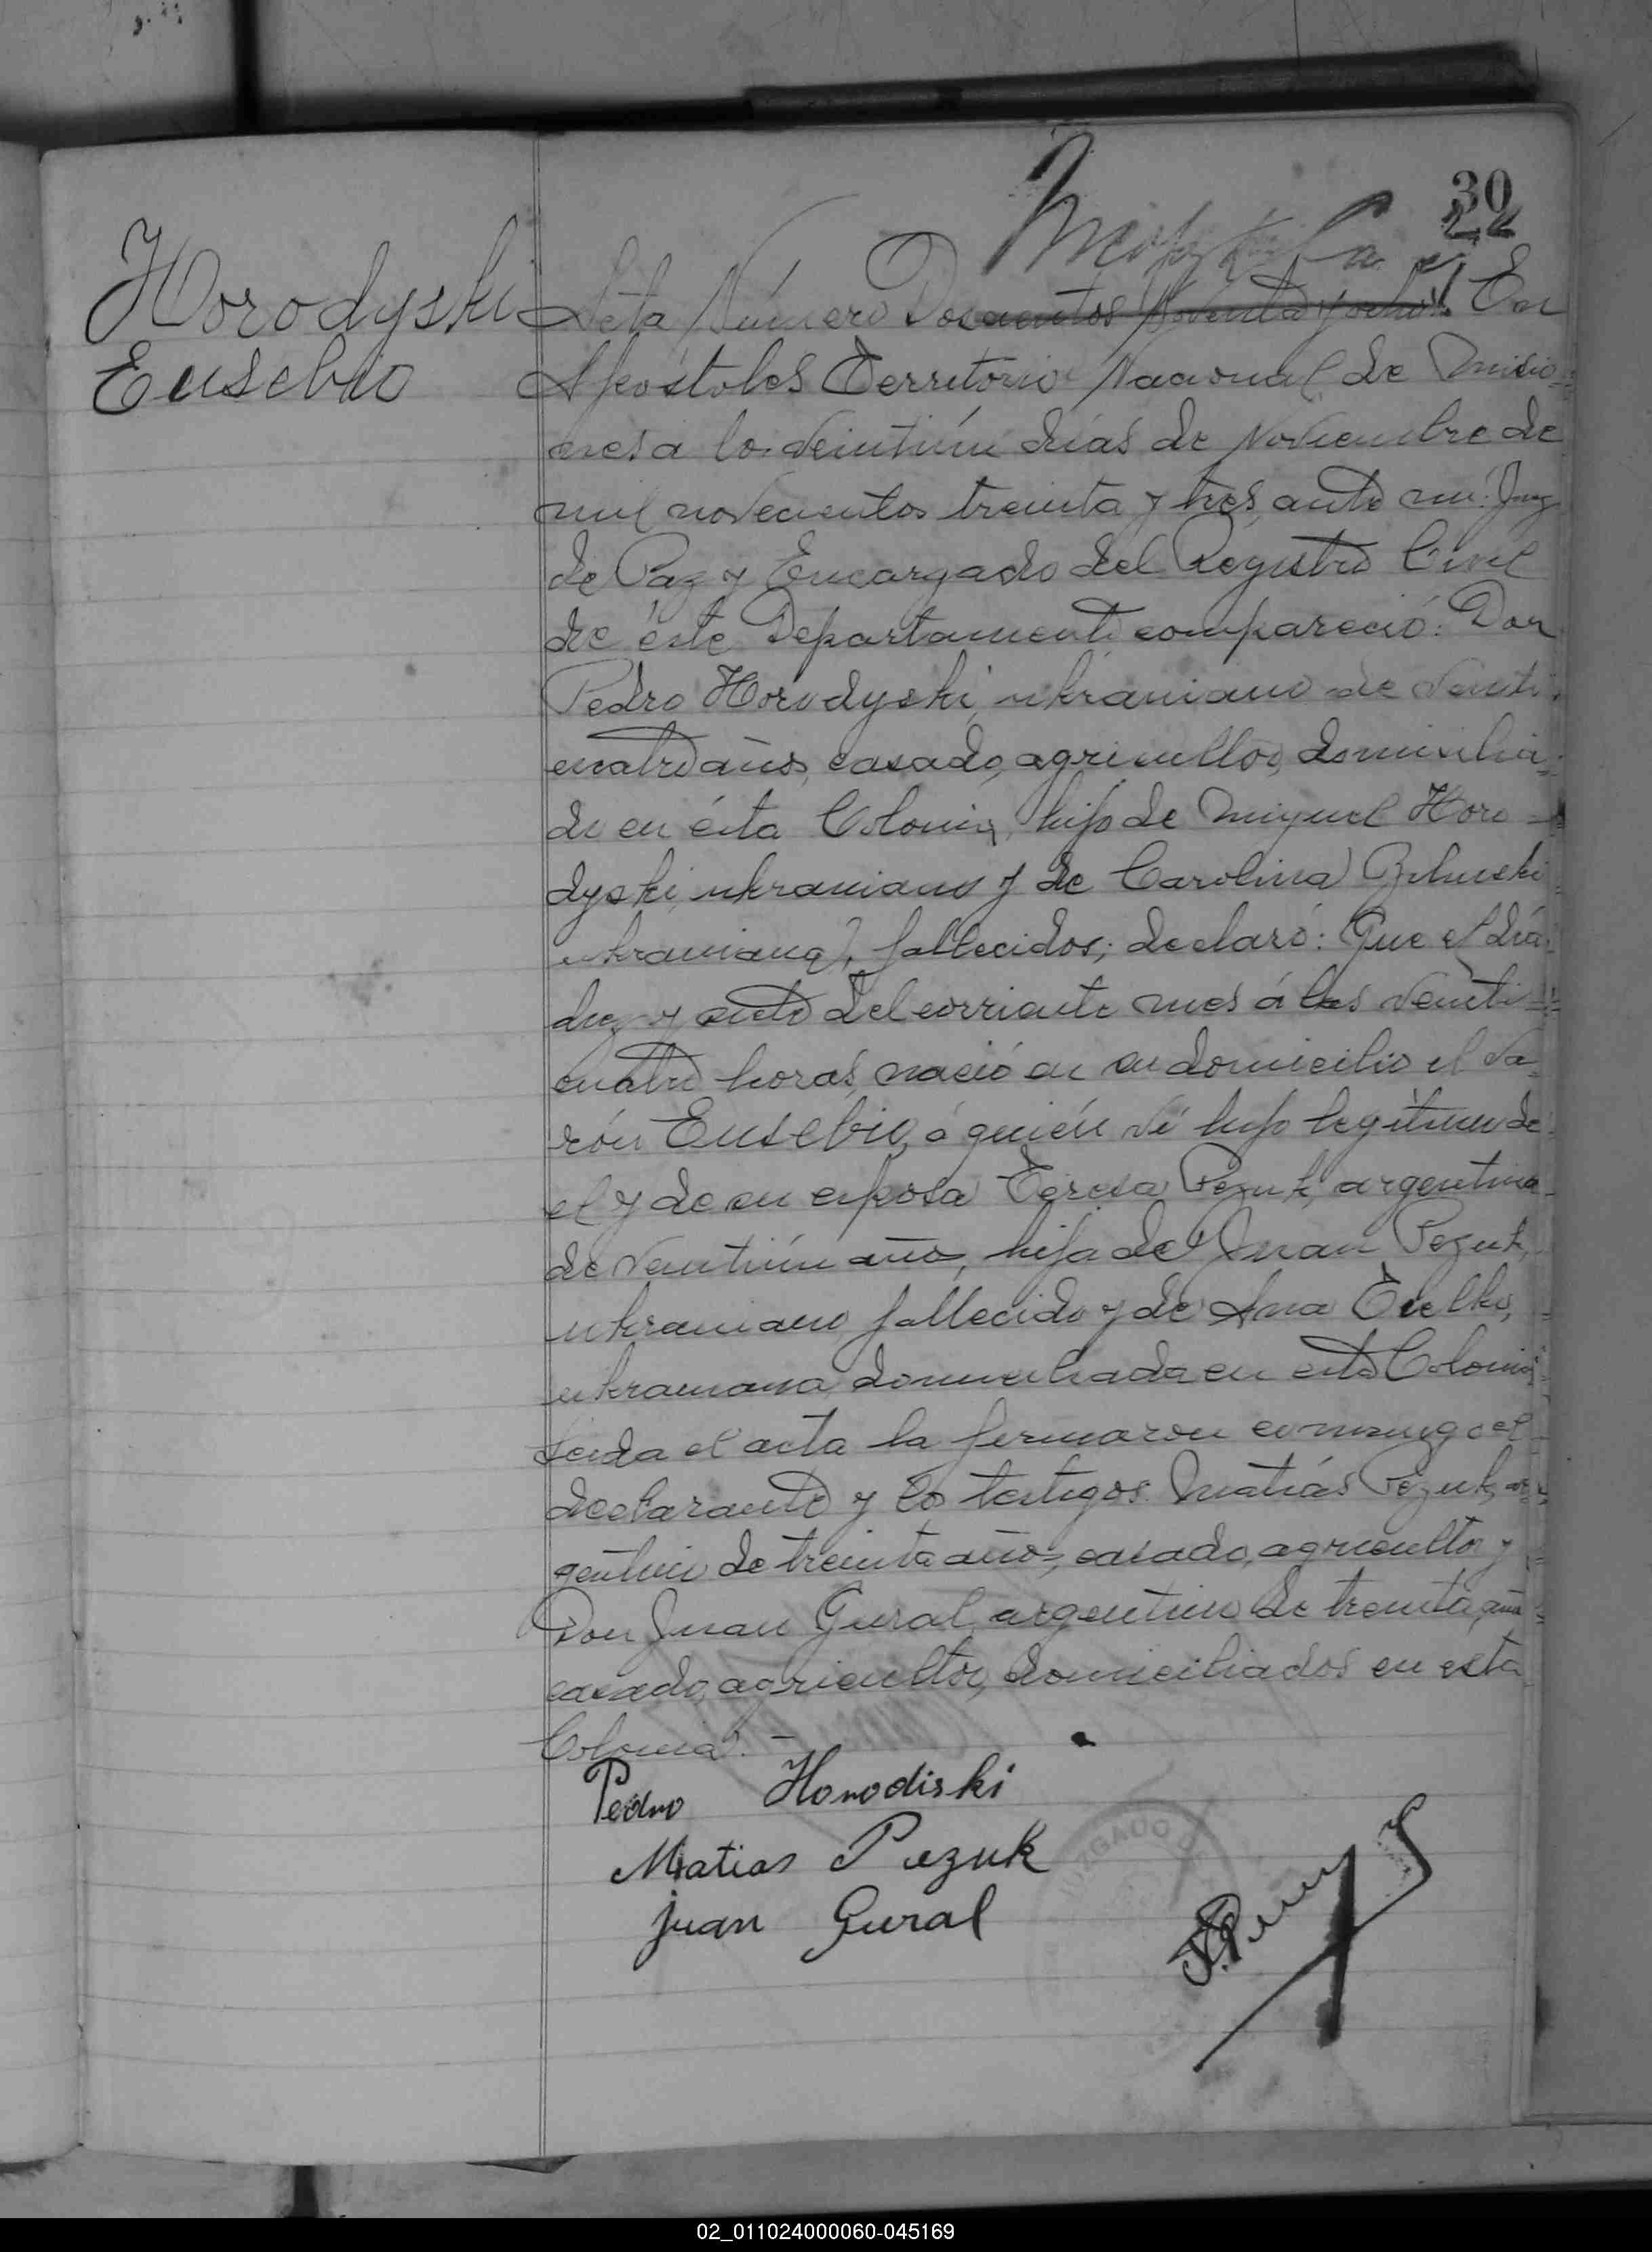 30
22
Horodyski
Eusebio
Acta Número Doscientos Noventa y ocho. En
Apóstoles Territorio Nacional de Misio=
nes a los veintiún días de Noviembre de
mil novecientos treinta y tres, ante mí: Juez
de Paz y Encargado del Registro Civil
de éste Departamento compareció: Don
Pedro Horodyski, ukraniano de veinti=
cuatro años, casado, agricultor, domicilia=
do en ésta Colonia, hijo de Miguel Horo=
dyski, ukraniano y de Carolina
ukraniana, fallecidos; declaró: Que el día
diez y siete del corriente mes á las veinti=
cuatro horas, nació en su domicilio el va=
rón Eusebio, á quién vi hijo legítimo de
el y de su esposa Teresa Pezuk, argentina
de veintiún años, hija de Juan Pezuk,
ukraniano, fallecido y de Ana
ukraniana, domiciliada en esta Colonia
Leida el acta la firmaron conmigo el
declarante y los testigos Matías Pezuk, ar=
gentino de treinta años, casado, agricultor y
Don Juan Gural, argentino de treinta años
casado, agricultor, domiciliados en esta
Colonia. —
Pedro Horodiski
Matias Pezuk
Juan Gural
JUZGADO DE
02_011024000060-045169